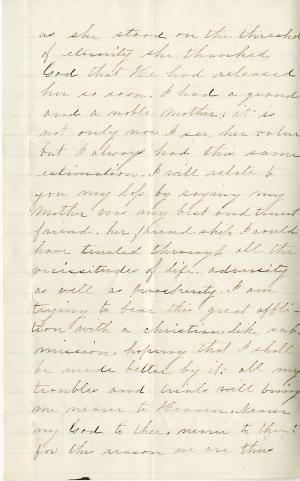 as she stood on the threshold
of eternity she thanked
God that He had released
her so soon. I had a grand
and a noble mother; it is
not only now I see her value
but I always had this same
estimation. I will relate to
you my loss by saying my
Mother was my best and truest
friend. her friend ship I could
have trusted through all the
vicissitudes of life. adversity
as well as prosperity. I am
trying to bear this great afflic-
tion with a christianlik sub-
mission. hoping that I shall
be made better by it: all my
troubles and trials will bring
me nearer to Heaven. Nearer
my God to thee. nearer to thee!
for this reason we are thus